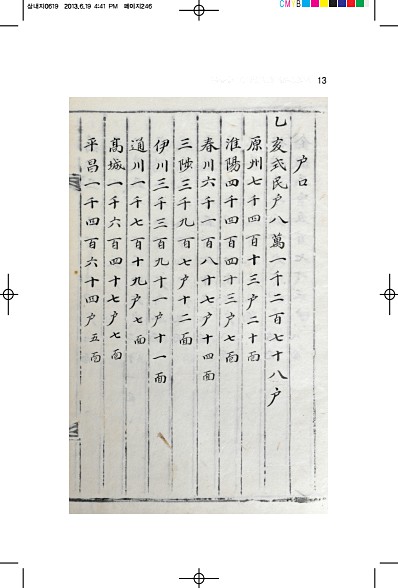 삼내지0619 2013.6.19 4:41 PM 페이지246
CMYB
13
户口
乙亥式民户八萬一千二百七十八户
原州七千四百十三户二十面
淮陽四千四百四十三户七面
春川六千一百八十七户十四面
三陟三千九百七户十二面
伊川三千三百九十一户十一面
通川一千七百十九户七面
高城一千六百四十七户七面
平昌一千四百六十四户五面